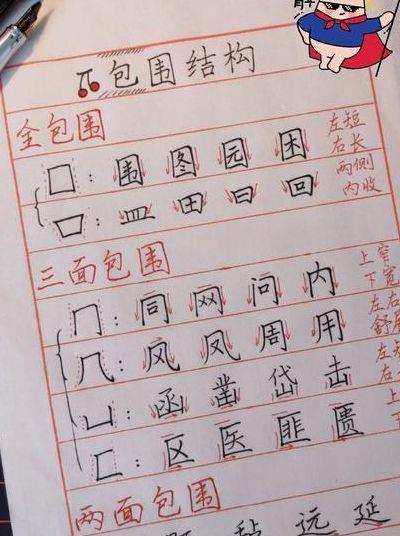 解
包围结构
全包围
囗：围图园困 左短右长
口：皿田曰回 两侧内收
三面包围
冂：同网问内 上窄下宽
几：风凤周用 左右舒展
凵：函凿岱击
匚：区医匪匮
两面包围
远延